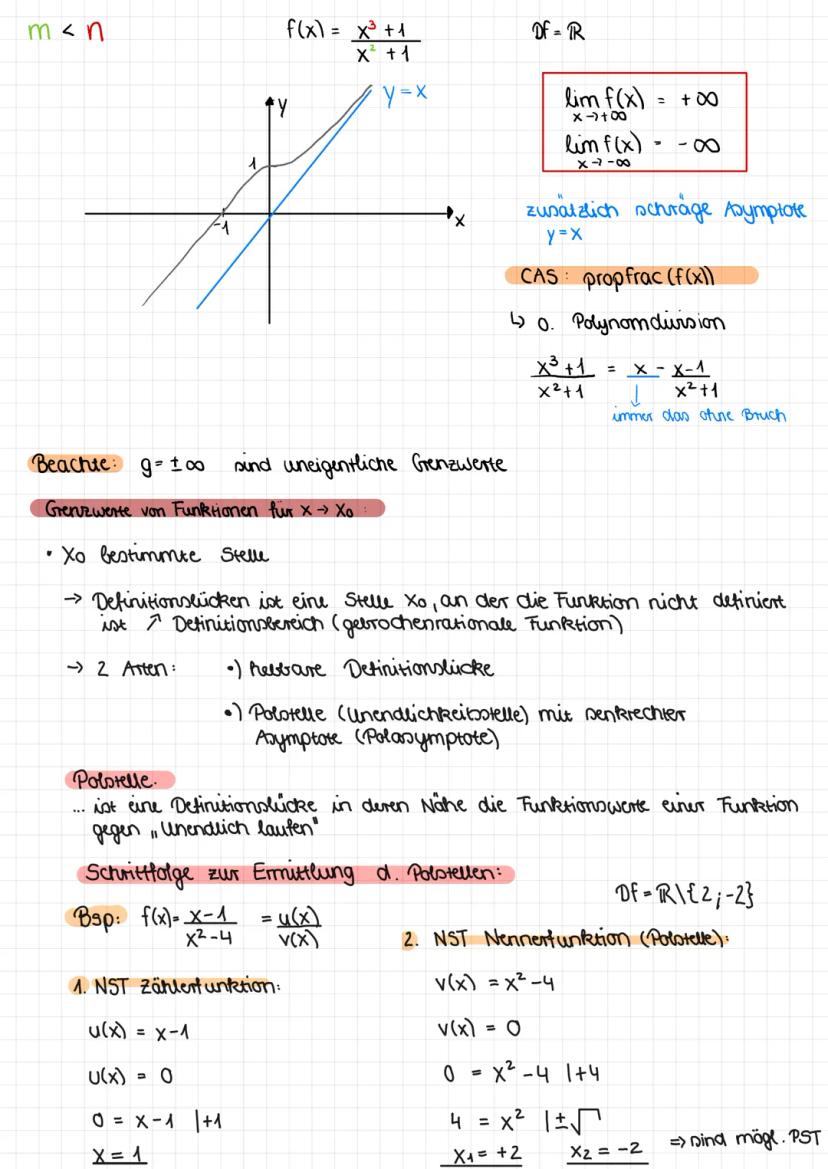 m < n
f(x) = (x³ + 1)/(x² + 1)
Df = ℝ
y
y = x
1
-1
x
lim f(x) = +∞
x→+∞
lim f(x) = -∞
x→-∞
zusätzlich schräge Asymptote
y = x
CAS: propfrac (f(x))
↳ o. Polynomdivision
(x³+1)/(x²+1) = x - (x-1)/(x²+1)
immer das ohne Bruch
Beachte: g = ±∞ sind uneigentliche Grenzwerte
Grenzwerte von Funktionen für x → x₀ :
• x₀ bestimmte Stelle
→ Definitionslücken ist eine Stelle x₀, an der die Funktion nicht definiert
ist ↗ Definitionsbereich (gebrochenrationale Funktion)
→ 2 Arten: •) hebbare Definitionslücke
•) Polstelle (Unendlichkeitsstelle) mit senkrechter
Asymptote (Polasymptote)
Polstelle.
... ist eine Definitionslücke in deren Nähe die Funktionswerte einer Funktion
gegen „Unendlich laufen"
Schrittfolge zur Ermittlung d. Polstellen:
Df = ℝ\{2;-2}
Bsp: f(x) = (x-1)/(x²-4) = u(x)/v(x)
1. NST Zählerfunktion:
u(x) = x-1
u(x) = 0
0 = x-1 |+1
x = 1
2. NST Nennerfunktion (Polstelle):
v(x) = x²-4
v(x) = 0
0 = x² -4 |+4
4 = x² |±√
x₁ = +2 x₂ = -2 ⇒ sind mögl. PST